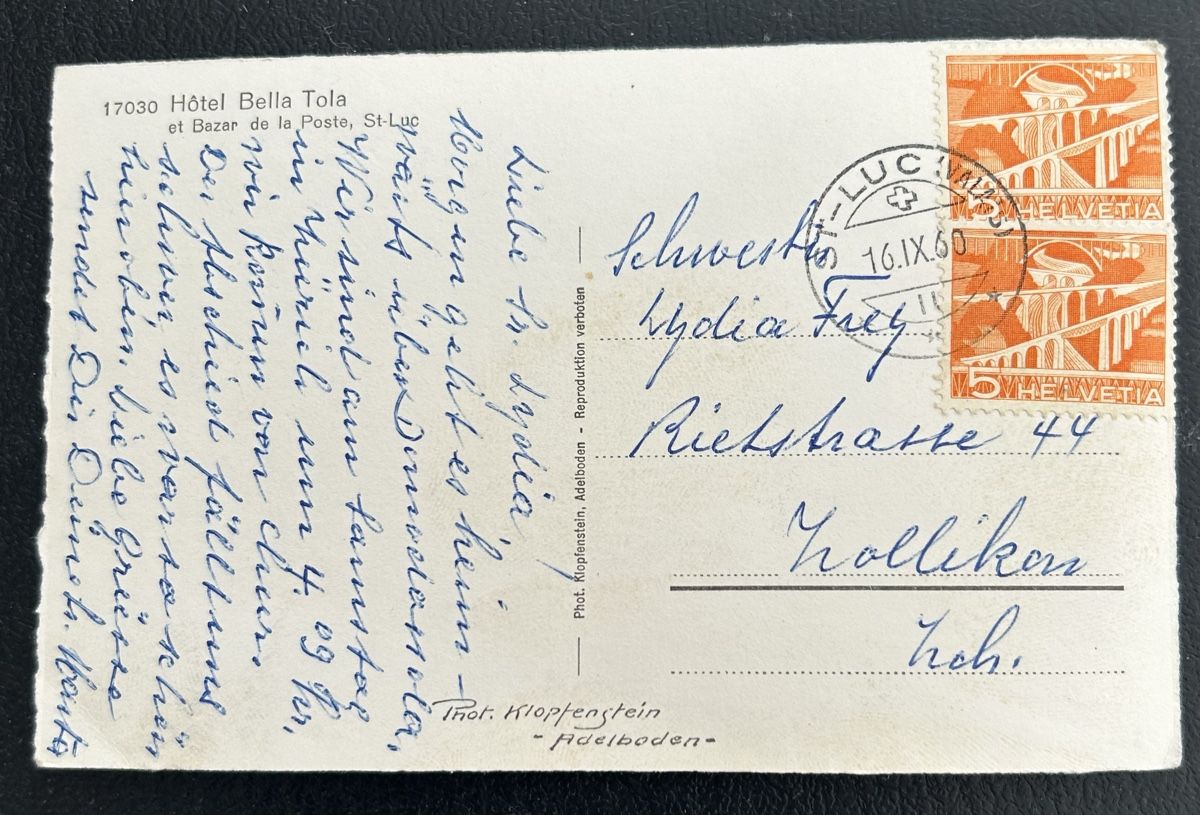 17030 Hôtel Bella Tola
et Bazar de la Poste, St-Luc
Liebe Sr. Lydia,
Morgen geht es heim-
wärts über Domodossola,
Wir sind am Samstag
in Zürich um 4.09 Uhr,
wir kommen von Chur.
Der Abschied fällt uns
schwer es war so schön
hier oben. Liebe Grüsse
sendet Dir Deine Sr. Marta
Phot. Klopfenstein, Adelboden - Reproduktion verboten
Phot. Klopfenstein
- Adelboden -
ST-LUC (VALAIS)
16.IX.60
11
5 HELVETIA
5 HELVETIA
Schwester
Lydia Frey
Rietstrasse 44
Zollikon
Zch.